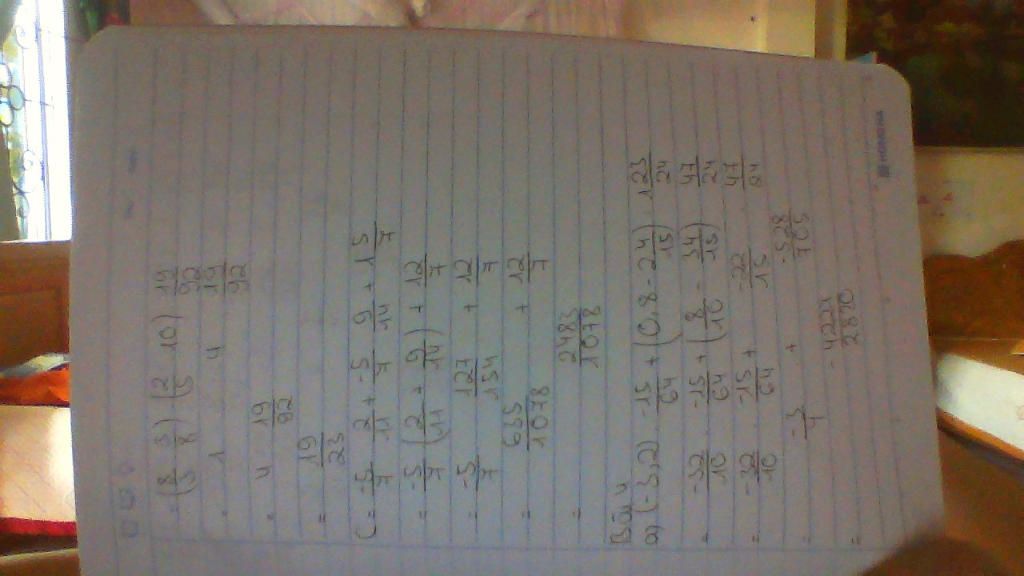 = (8/3 · 3/8) · (2/5 · 10) · 19/92
= 1 · 4 · 19/92
= 4 · 19/92
= 19/23
C = -5/7 · 2/11 + -5/7 · 9/14 + 1 5/7
= -5/7 · (2/11 + 9/14) + 12/7
= -5/7 · 127/154 + 12/7
= 635/1078 + 12/7
= 2483/1078
Bài 4
a) (-3,2) · -15/64 + (0,8 - 2 4/15) : 1 23/24
= -32/10 · -15/64 + (8/10 - 34/15) : 47/24
= -32/10 · -15/64 + -22/15 : 47/24